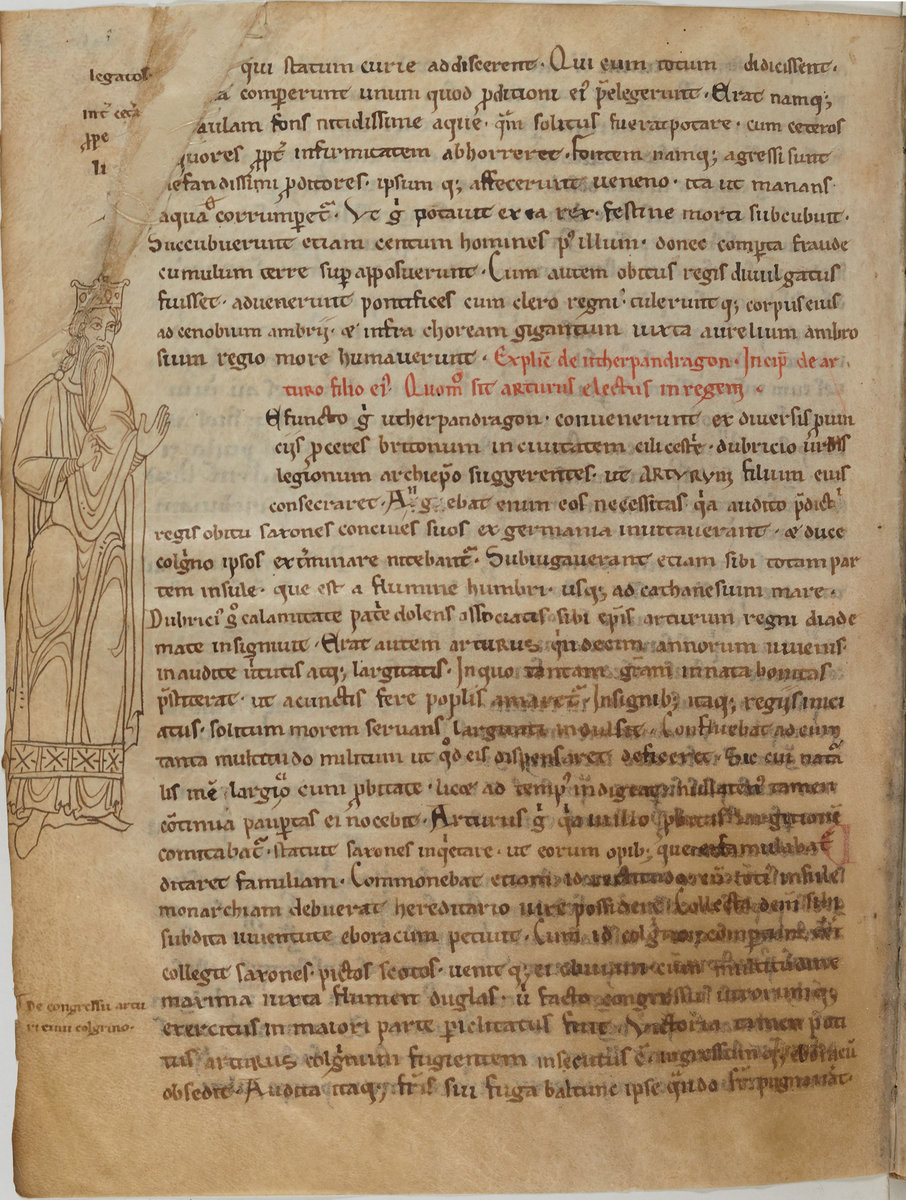 legatos·
int̄ cet̄a
ꝓpe
li
qui statum curie addiscerent· Qui eum totum didicissent·
comperunt unum quod ꝓditioni ei᷒ p̄elegerunt· Erat namq;
aulam fons nitidissime aque· quā solitus fuerat potare· cum ceteros
quores ꝓpt̄ infirmitatem abhorreret· fontem namq; agressi sunt
nefandissimi ꝓditores· ipsum q; affecerunt ueneno· ita ut manans
aqua corrumꝑet᷑· Vt g̊ potauit ex ea rex· festine morti subcubuit·
Succubuerunt etiam centum homines p᷒ illum· donec comꝑta fraude
cumulum terre suꝑ apposuerunt· Cum autem obitus regis diuulgatus
fuisset· aduenerunt pontifices cum clero regni· tulerunt q; corpus eius
ad cenobium ambrij· & infra choream gigantum iuxta aurelium ambro
sium regio more humauerunt· Explič de utherpandragon· Incip̄ de ar-
turo filio ei᷒· Quom̊ sit arturus electus in regem·
Efuncto g̊ utherpandragon· conuenerunt ex diuersis ꝓuin
ciis ꝓceres britonum in ciuitatem cilicestr̄· dubricio urbis
legionum archiep̄o suggerentes· ut ARTVRVM filium eius
consecraret· Angebat enim eos necessitas· q̊a audito p̄dicti
regis obitu saxones conciues suos ex germania inuitauerant· & duce
colgrino ipsos ext̄minare nitebant᷑· Subiugauerant etiam sibi totam par
tem insule· que est a flumine humbri· usq; ad cathanesium mare·
Dubrici᷒ g̊ calamitate pat̄e dolens associatis sibi ep̄is arturum regni diade
mate insigniuit· Erat autem arturus quindecim annorum iuuenis·
inaudite uirtutis atq; largitatis· In quo tantam gratiam innata bonitas
p̄stiterat· ut a cunctis fere popl̄is amaret᷑· Insignib; itaq; regiis inici
atus· solitum morem seruans largitati indulsit· Confluebat ad eum
tanta multitudo militum ut qd̊ eis dispensaret deficeret· Sic cui nat̄a
lis inē largitio cum ꝓbitate· licet ad temp᷒ indigeat nullaten᷒ tamen
cōtinua pauꝑtas ei nocebit· Arturus g̊ q̊a in illo ꝓbitas largitionē
comitabat᷑· statuit saxones inq̊etare· ut eorum opib; que ei famulabat᷑
ditaret familiam· Commonebat etiam id rectitudo cū toti᷒ insule
monarchiam debuerat hereditario iure possidere· Collecta deinde sibi
subdita iuuentute eboracum petiuit· Cumq; id colgrino compertum
collegit saxones· pictos scotos· uenit q; ei obuiam cum multitudine
maxima iuxta flumen duglas· ū facto congressu utrorumq;
exercitus in maiori parte ꝑiclitatus fuit· Victoria tamen poti
tus arturus colgrinum fugientem insecutus ē ingressum q; eboracū
obsedit· Audita itaq; fr̄is sui fuga baldulf᷒
De congressu artu
ri cum colgrino·